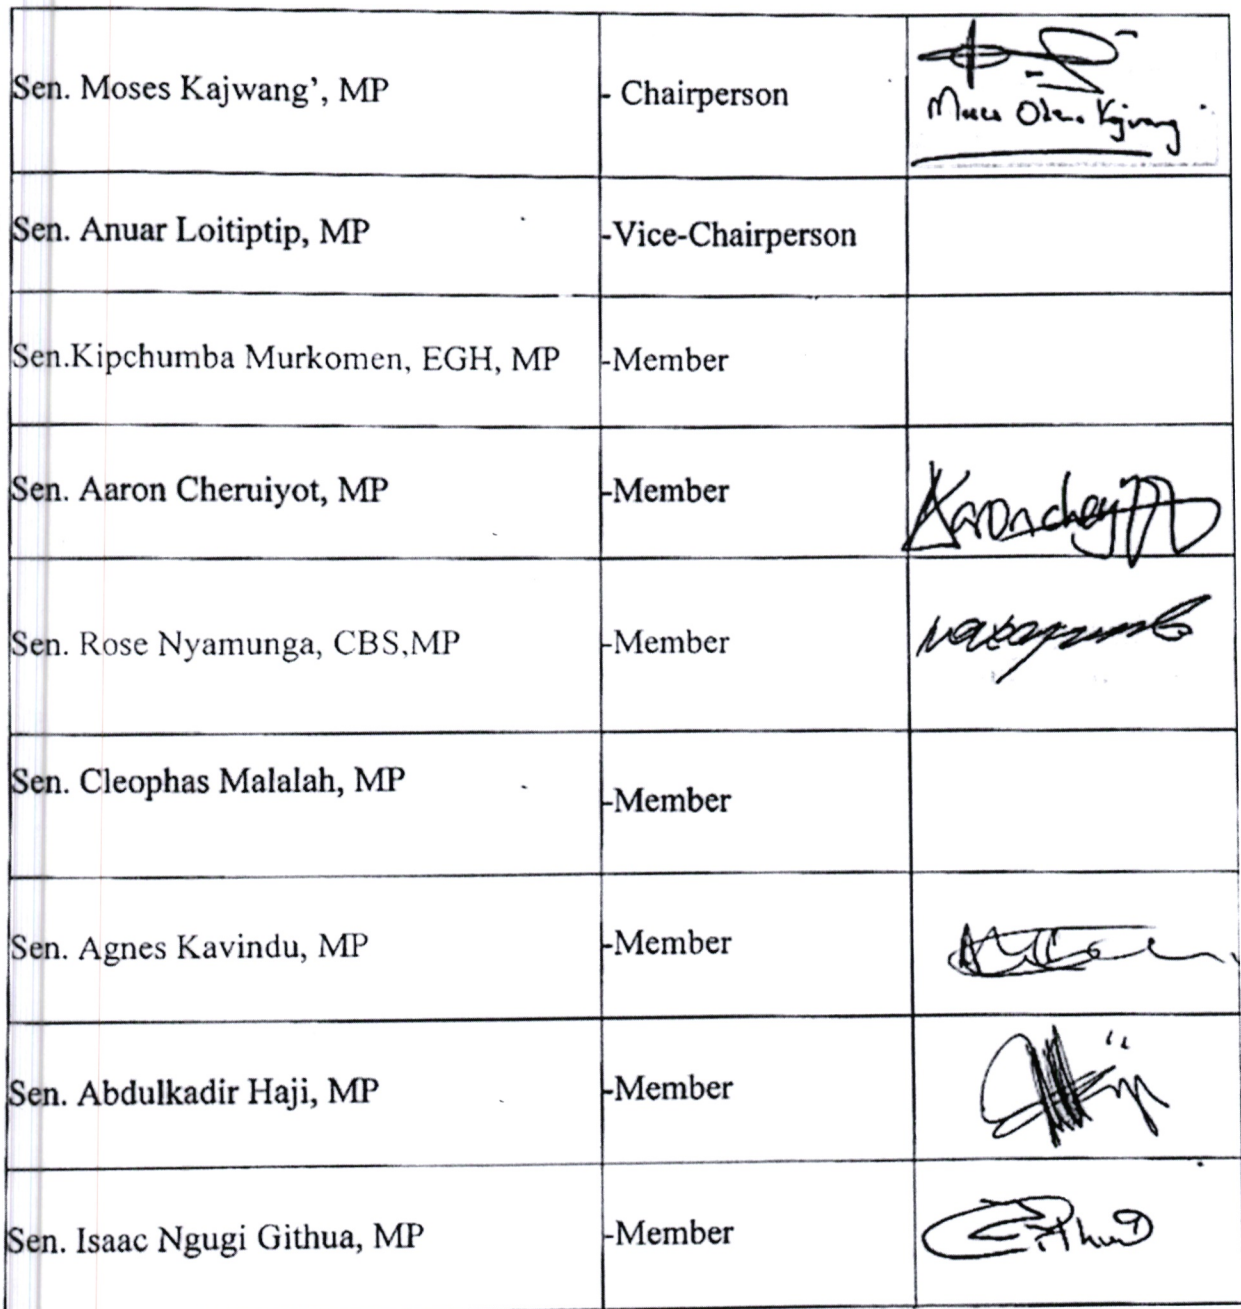 Sen. Moses Kajwang’, MP - Chairperson
Moses Kajwang
Sen. Anuar Loitiptip, MP -Vice-Chairperson
Sen.Kipchumba Murkomen, EGH, MP -Member
Sen. Aaron Cheruiyot, MP -Member
Sen. Rose Nyamunga, CBS,MP -Member
Sen. Cleophas Malalah, MP -Member
Sen. Agnes Kavindu, MP -Member
Sen. Abdulkadir Haji, MP -Member
Sen. Isaac Ngugi Githua, MP -Member